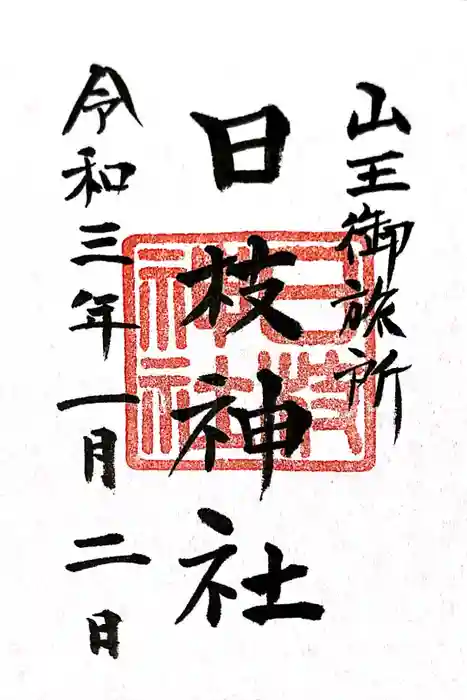 山王御旅所
日枝神社
令和三年一月二日
日枝神社